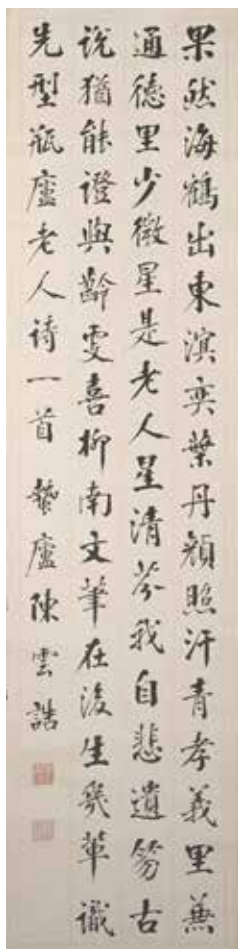 果然海鶴出東溟奕葉丹顏照汗青孝義里兼
通德里少微星是老人星清芬我自悲遺笏古
說猶能證與齡雯喜柳南文筆在後生幾輩識
先型瓶廬老人詩一首 蟄廬陳雲誥